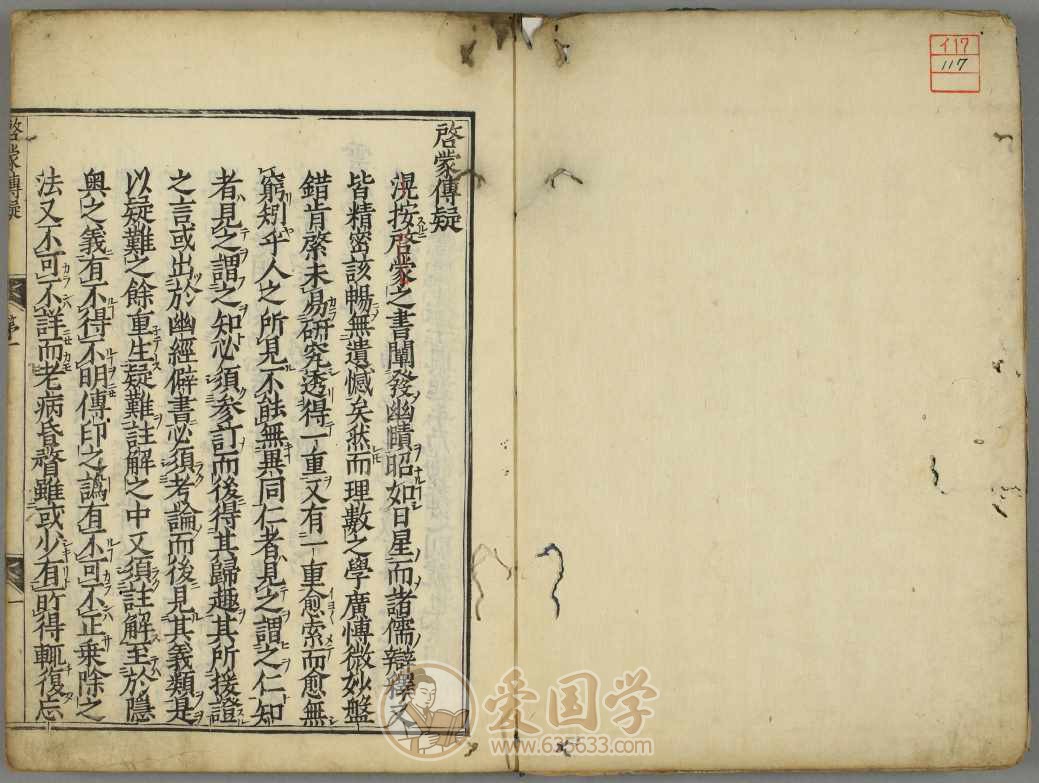 イ17
117
啓蒙傳疑
滉按啓蒙之書闡發幽賾昭如日星而諸儒辯釋又
皆精密該暢無遺憾矣然而理數之學廣愽微妙盤
錯肯綮未易硏究透得一重又有一重愈索而愈無
窮矧乎人之所見不能無異同仁者見之謂之仁知
者見之謂之知必須参訂而後得其歸趣其所援證
之言或出於幽經僻書必須考論而後見其義類是
以疑難之餘重生疑難註解之中又須註解至於隱
奥之義有不得不明傳印之譌有不可不正乗除之
法又不可不詳而老病昏瞀雖或少有所得輒復忘
啓蒙傳疑
第一
爱国学
www.635633.com